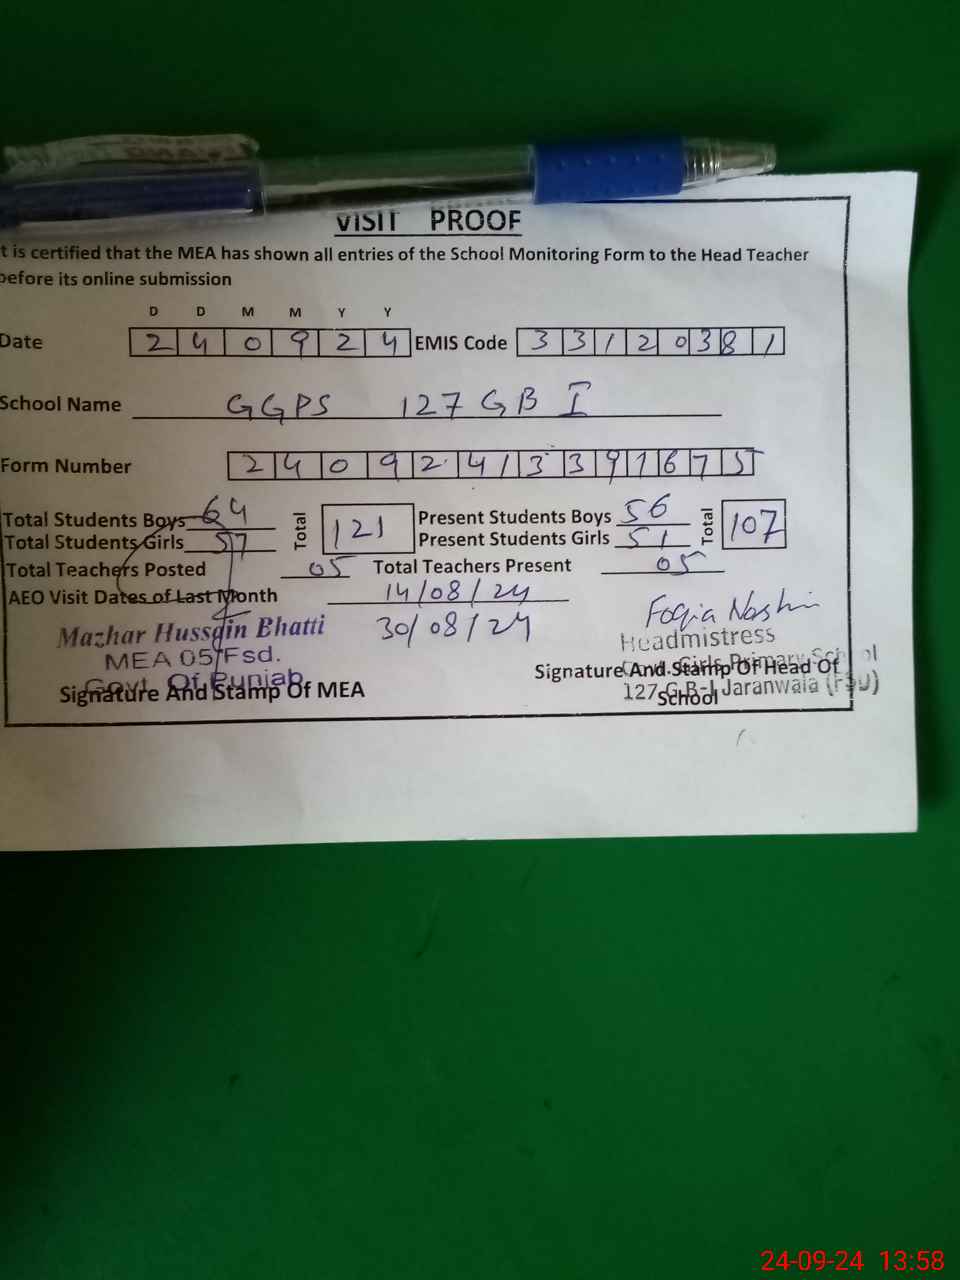 VISIT PROOF
t is certified that the MEA has shown all entries of the School Monitoring Form to the Head Teacher
before its online submission
D D M M Y Y
Date 2 4 0 9 2 4 EMIS Code 3 3 1 2 0 3 8 1
School Name GGPS 127 GB I
Form Number 2 4 0 9 2 4 1 3 3 9 1 6 7 5
Total Students Boys 64 Total 121 Present Students Boys 56 Total 107
Total Students Girls 57 Present Students Girls 51
Total Teachers Posted 05 Total Teachers Present 05
AEO Visit Dates of Last Month 14/08/24
30/08/24
Mazhar Hussain Bhatti
MEA 05 Fsd.
Govt. Of Punjab
Signature And Stamp Of MEA
Foqia Noshin
Headmistress
Govt. Girls Primary School
127 G.B-I Jaranwala (FSD)
Signature And Stamp Of Head Of
School
24-09-24 13:58